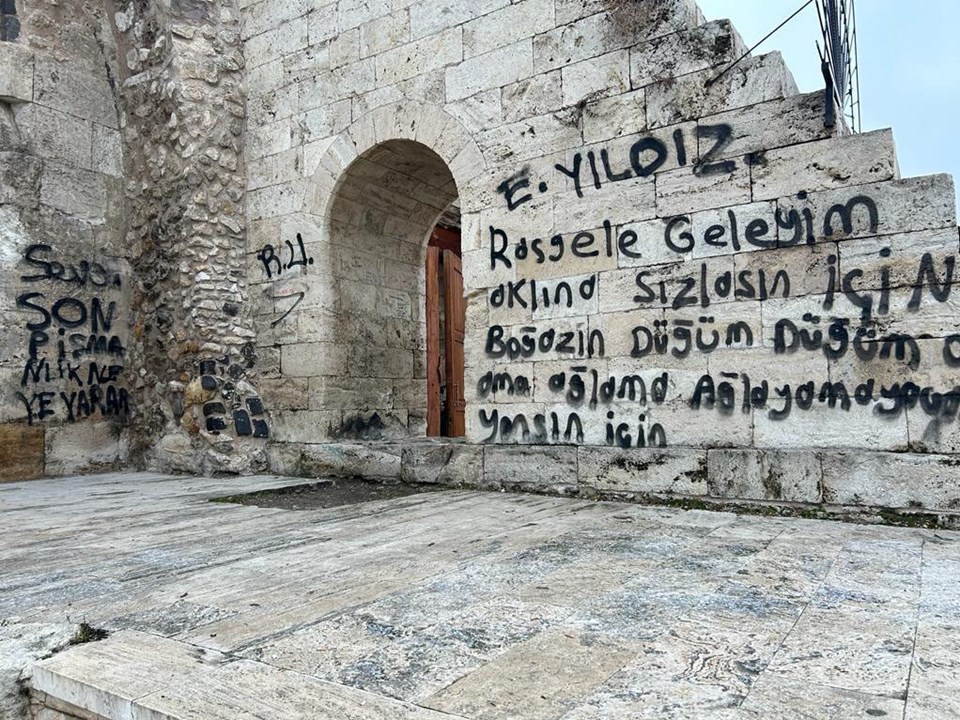 SON
PİSMA
NLIK NE
YE YARAR
R.U.
E. YILDIZ
Rasgele Geleyim
aklına Sızlasın içiN
Boğazin Düğüm Düğüm
ama ağlama Ağlayamayaca
yansın için